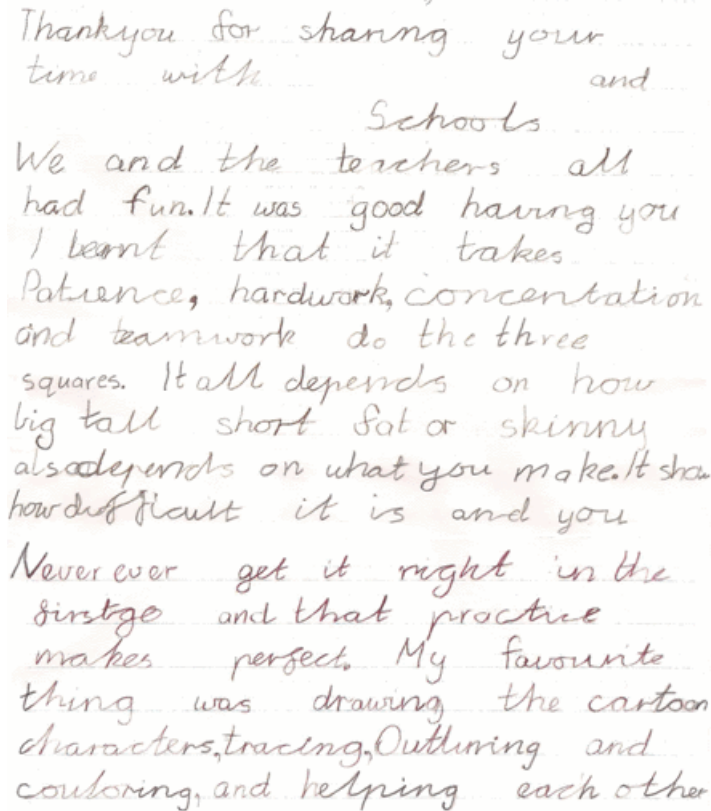 Thankyou for sharing your
time with and
Schools
We and the teachers all
had fun. It was good having you
I learnt that it takes
Patience, hardwork, concentation
and teamwork do the three
squares. It all depends on how
big tall short fat or skinny
alsodepends on what you make. It show
how difficult it is and you
Never ever get it right in the
firstgo and that practice
makes perfect. My favourite
thing was drawing the cartoon
characters, tracing, Outlining and
couloring, and helping each other